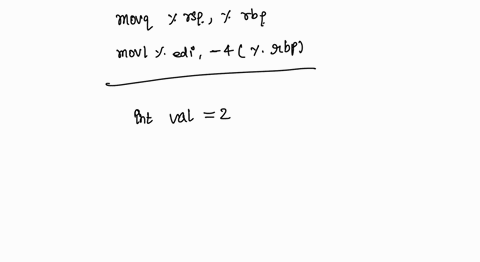 movq % rsp, % rbp
movl %. edi, -4(%. rbp)
int val = 2